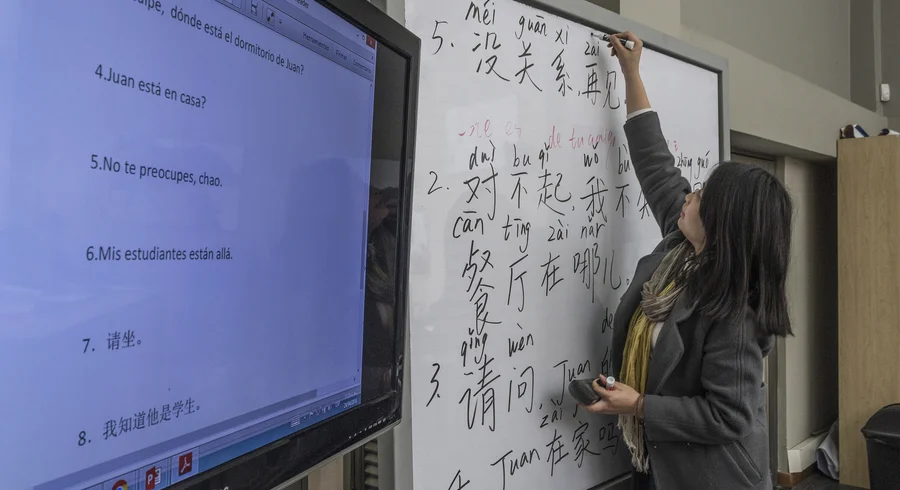 dónde está el dormitorio de Juan?
4.Juan está en casa?
5.No te preocupes, chao.
6.Mis estudiantes están allá.
7. 请坐。
8. 我知道他是学生。
méi guān xi zài
5. 没关系,再见
duì bu qǐ wǒ bù zhōng guó
2. 对不起,我不
cān tīng zài nǎr
餐厅在哪儿。
qǐng wèn de
3. 请问, Juan
zài
Juan 在家吗